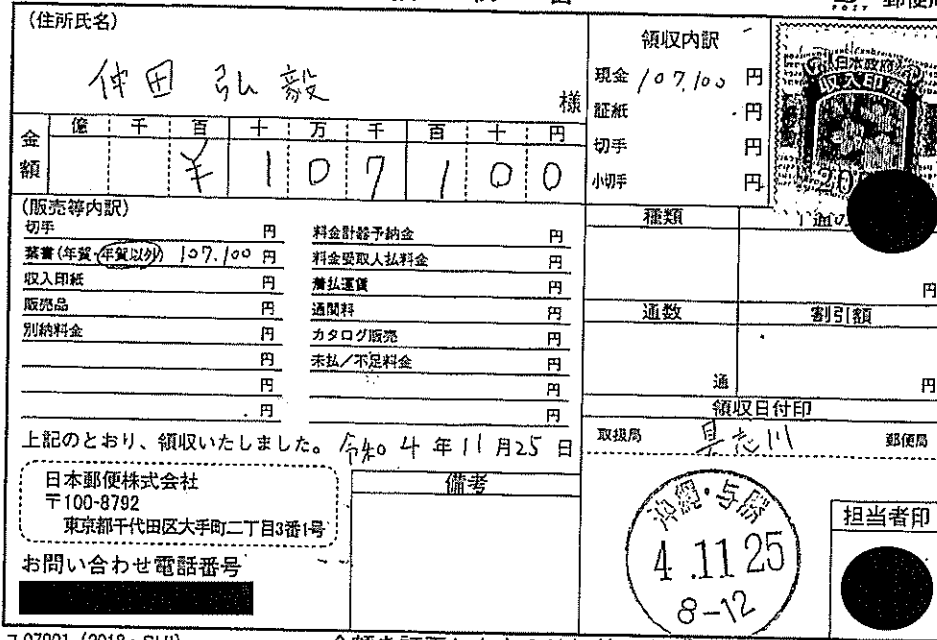 郵便局
(住所氏名)
仲田 弘毅 様
金額 億 千 百 十 万 千 百 十 円
¥ 1 0 7 1 0 0
領収内訳
現金 107,100 円
証紙 円
切手 円
小切手 円
日本政府
収入印紙
(販売等内訳)
切手 円
葉書(年賀・年賀以外) 107,100 円
収入印紙 円
販売品 円
別納料金 円
円
円
円
料金計器予納金 円
料金受取人払料金 円
着払運賃 円
通関料 円
カタログ販売 円
未払/不足料金 円
円
円
種類
円
通数 割引額
通 円
上記のとおり、領収いたしました。 令和 4 年 11 月 25 日
日本郵便株式会社
〒100-8792
東京都千代田区大手町二丁目3番1号
お問い合わせ電話番号
備考
領収日付印
取扱局 具志川 郵便局
沖縄・与勝
4.11.25
8-12
担当者印